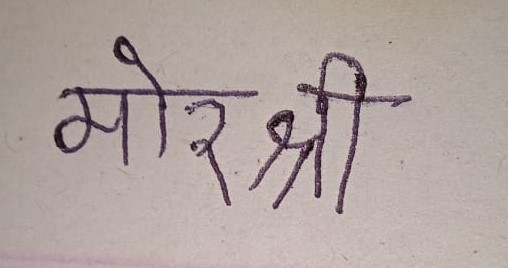 मोरश्री